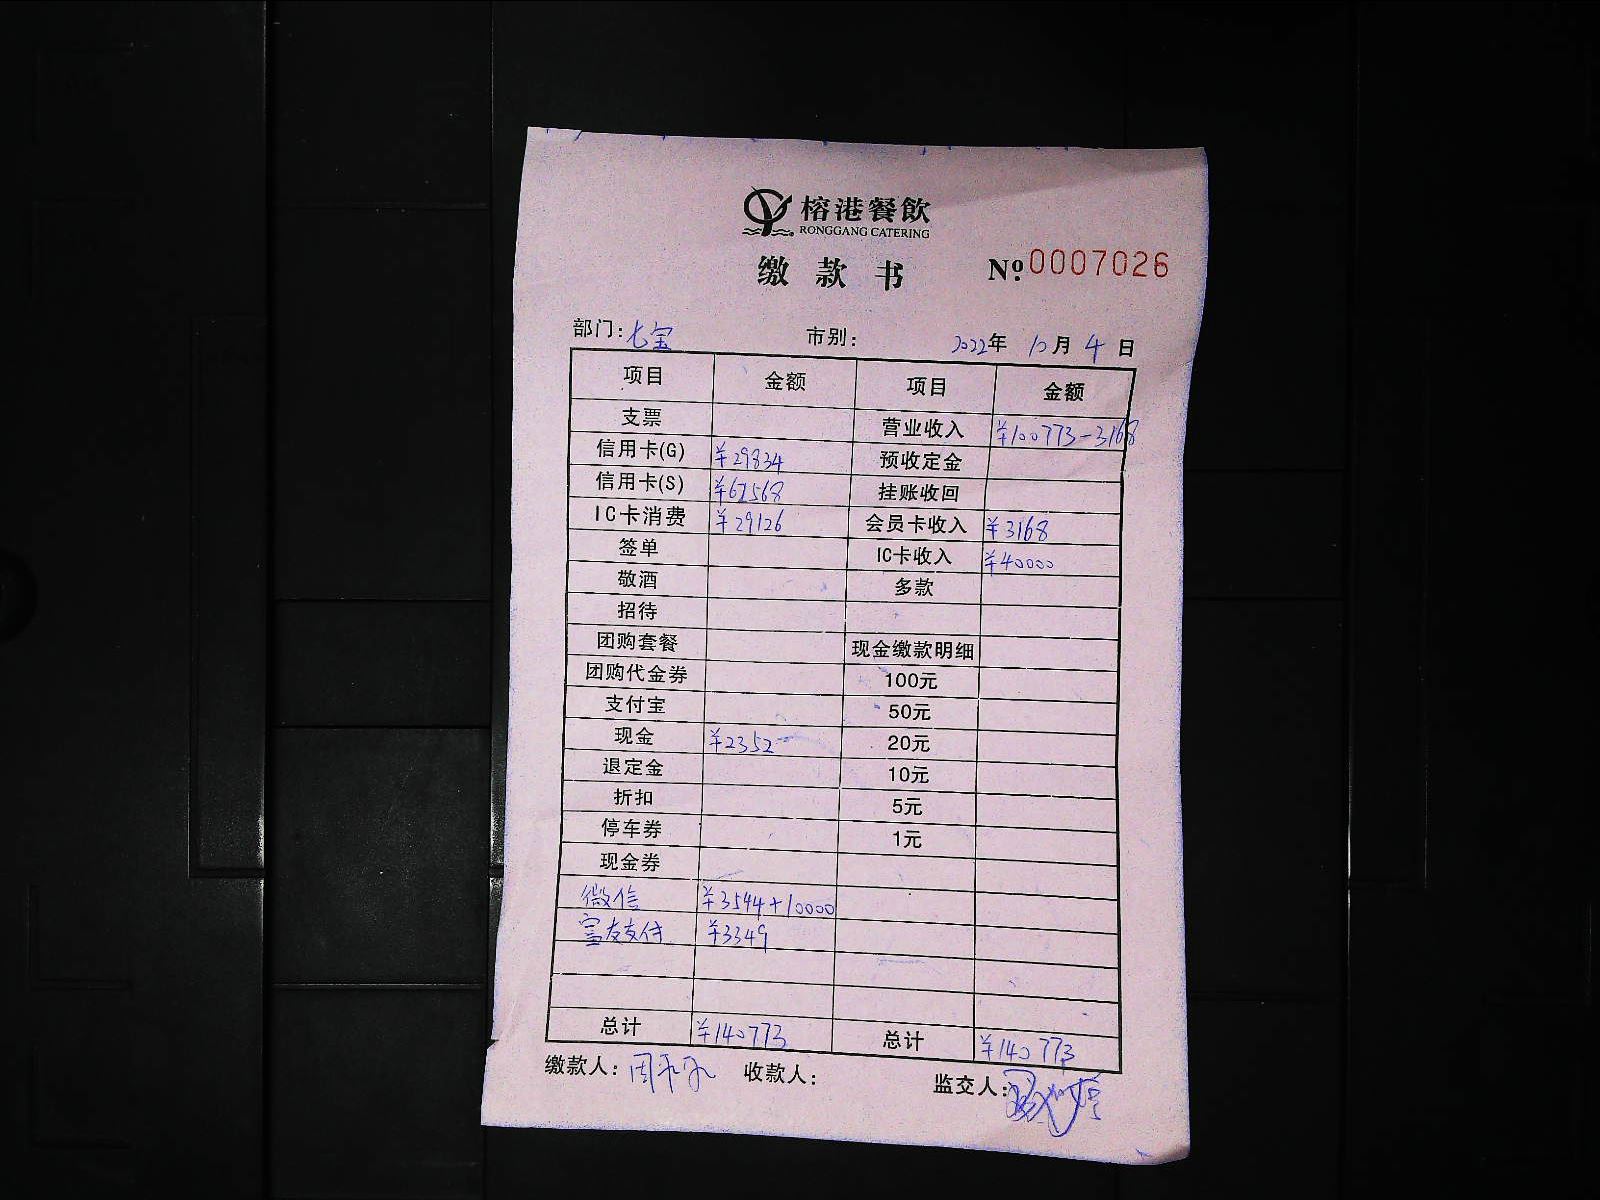 榕港餐飲
RONGGANG CATERING
缴款书 №0007026
部门:七宝 市别: 2022年 10月 4日
项目 金额 项目 金额
支票 营业收入 ¥100773-3168
信用卡(G) ¥29834 预收定金
信用卡(S) ¥62568 挂账收回
IC卡消费 ¥29126 会员卡收入 ¥3168
签单 IC卡收入 ¥40000
敬酒 多款
招待
团购套餐 现金缴款明细
团购代金券 100元
支付宝 50元
现金 ¥2352 20元
退定金 10元
折扣 5元
停车券 1元
现金券
微信 ¥3544+10000
富友支付 ¥3349
总计 ¥140773 总计 ¥140773
缴款人: 收款人: 监交人: